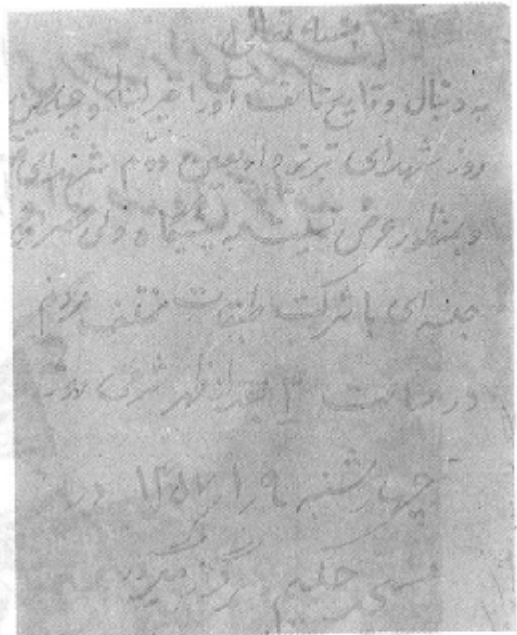 بسمه تعالی
به دنبال وقایع تأسف آور اخیر ایران و چهلمین
روز شهدای تبریز و اربعین دوم شهدای
و بمنظور عرض تسلیت به پیشگاه ولی عصر (عج)
جلسه ای با شرکت طبقات مختلف مردم
در ساعت ۳ بعد از ظهر شرعی روز
چهارشنبه ۹ر۱ر۱۳۵۷ در
مسجد حکیم برگزار میگردد